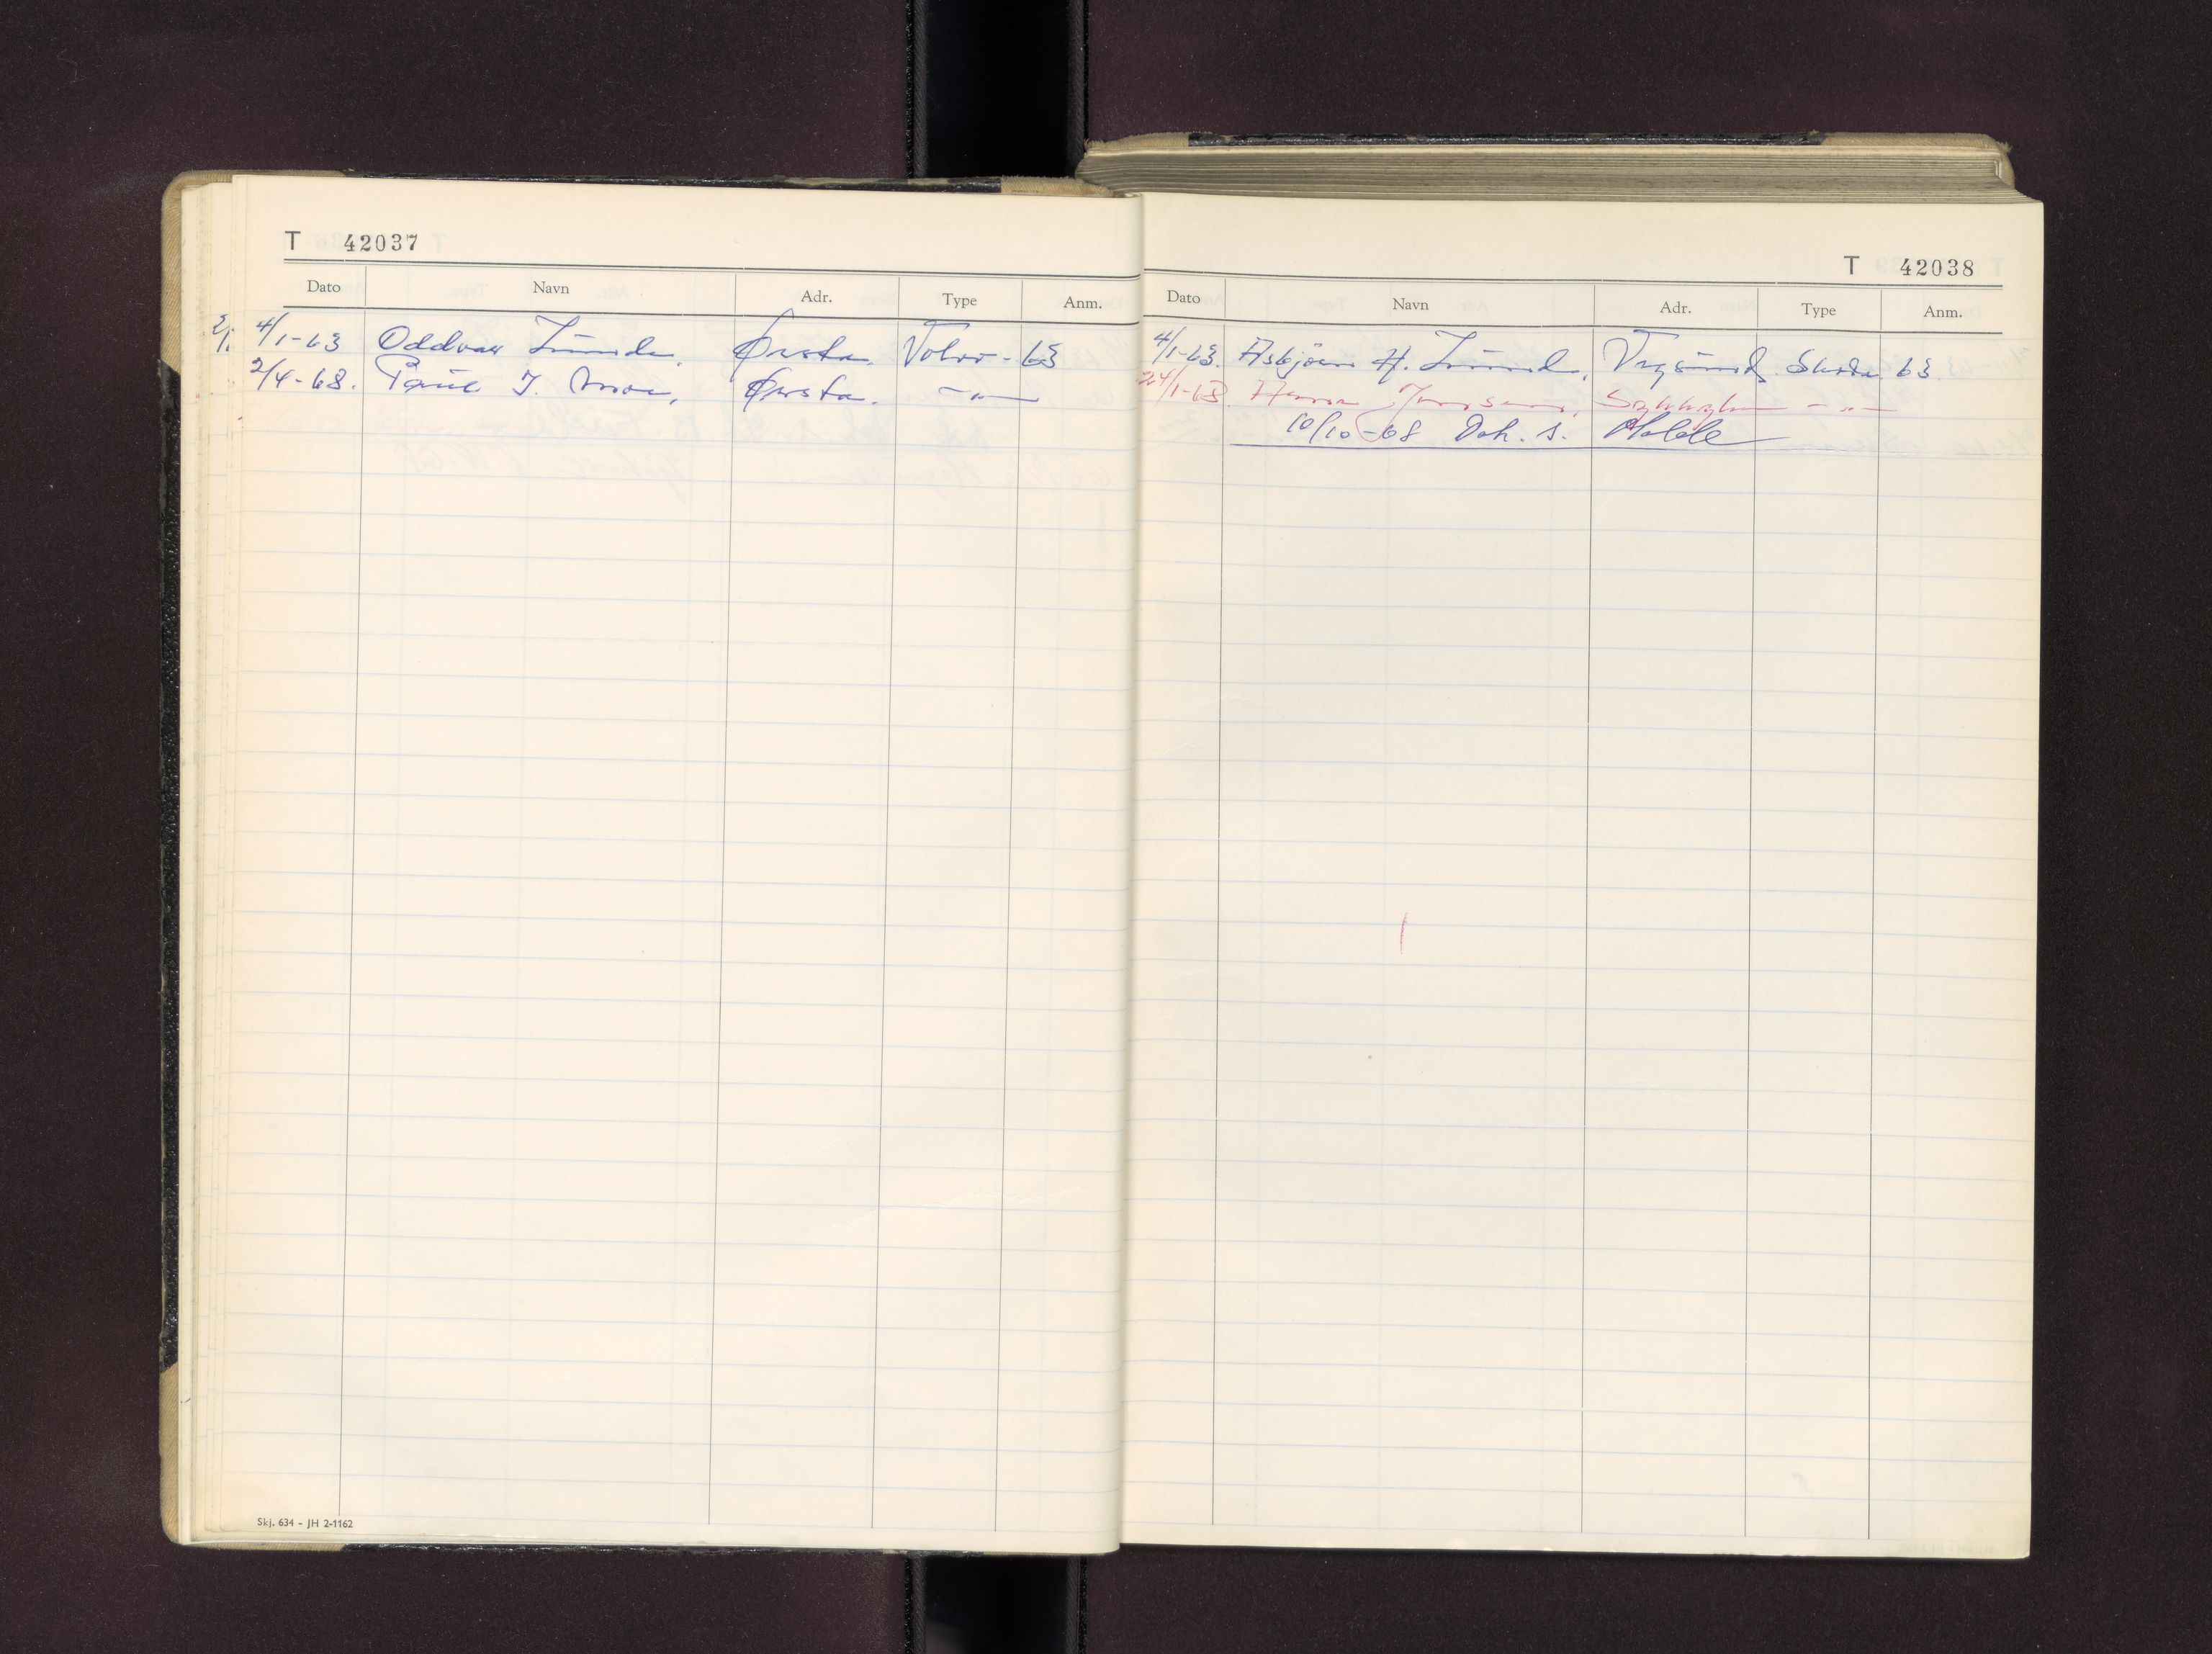 T 42037
Dato Navn Adr. Type Anm.
4/1-63 Oddvar Lunde, Ørsta. Volvo - 63
2/4-68. Paul J. Moe, Ørsta. -"-
Skj. 634 - JH 2-1162
T 42038
Dato Navn Adr. Type Anm.
4/1-63. Asbjörn H. Lunde, Vigsund. Skoda 63.
24/1-68 Sykkylven -"-
10/10-68 Dok. s. Molde